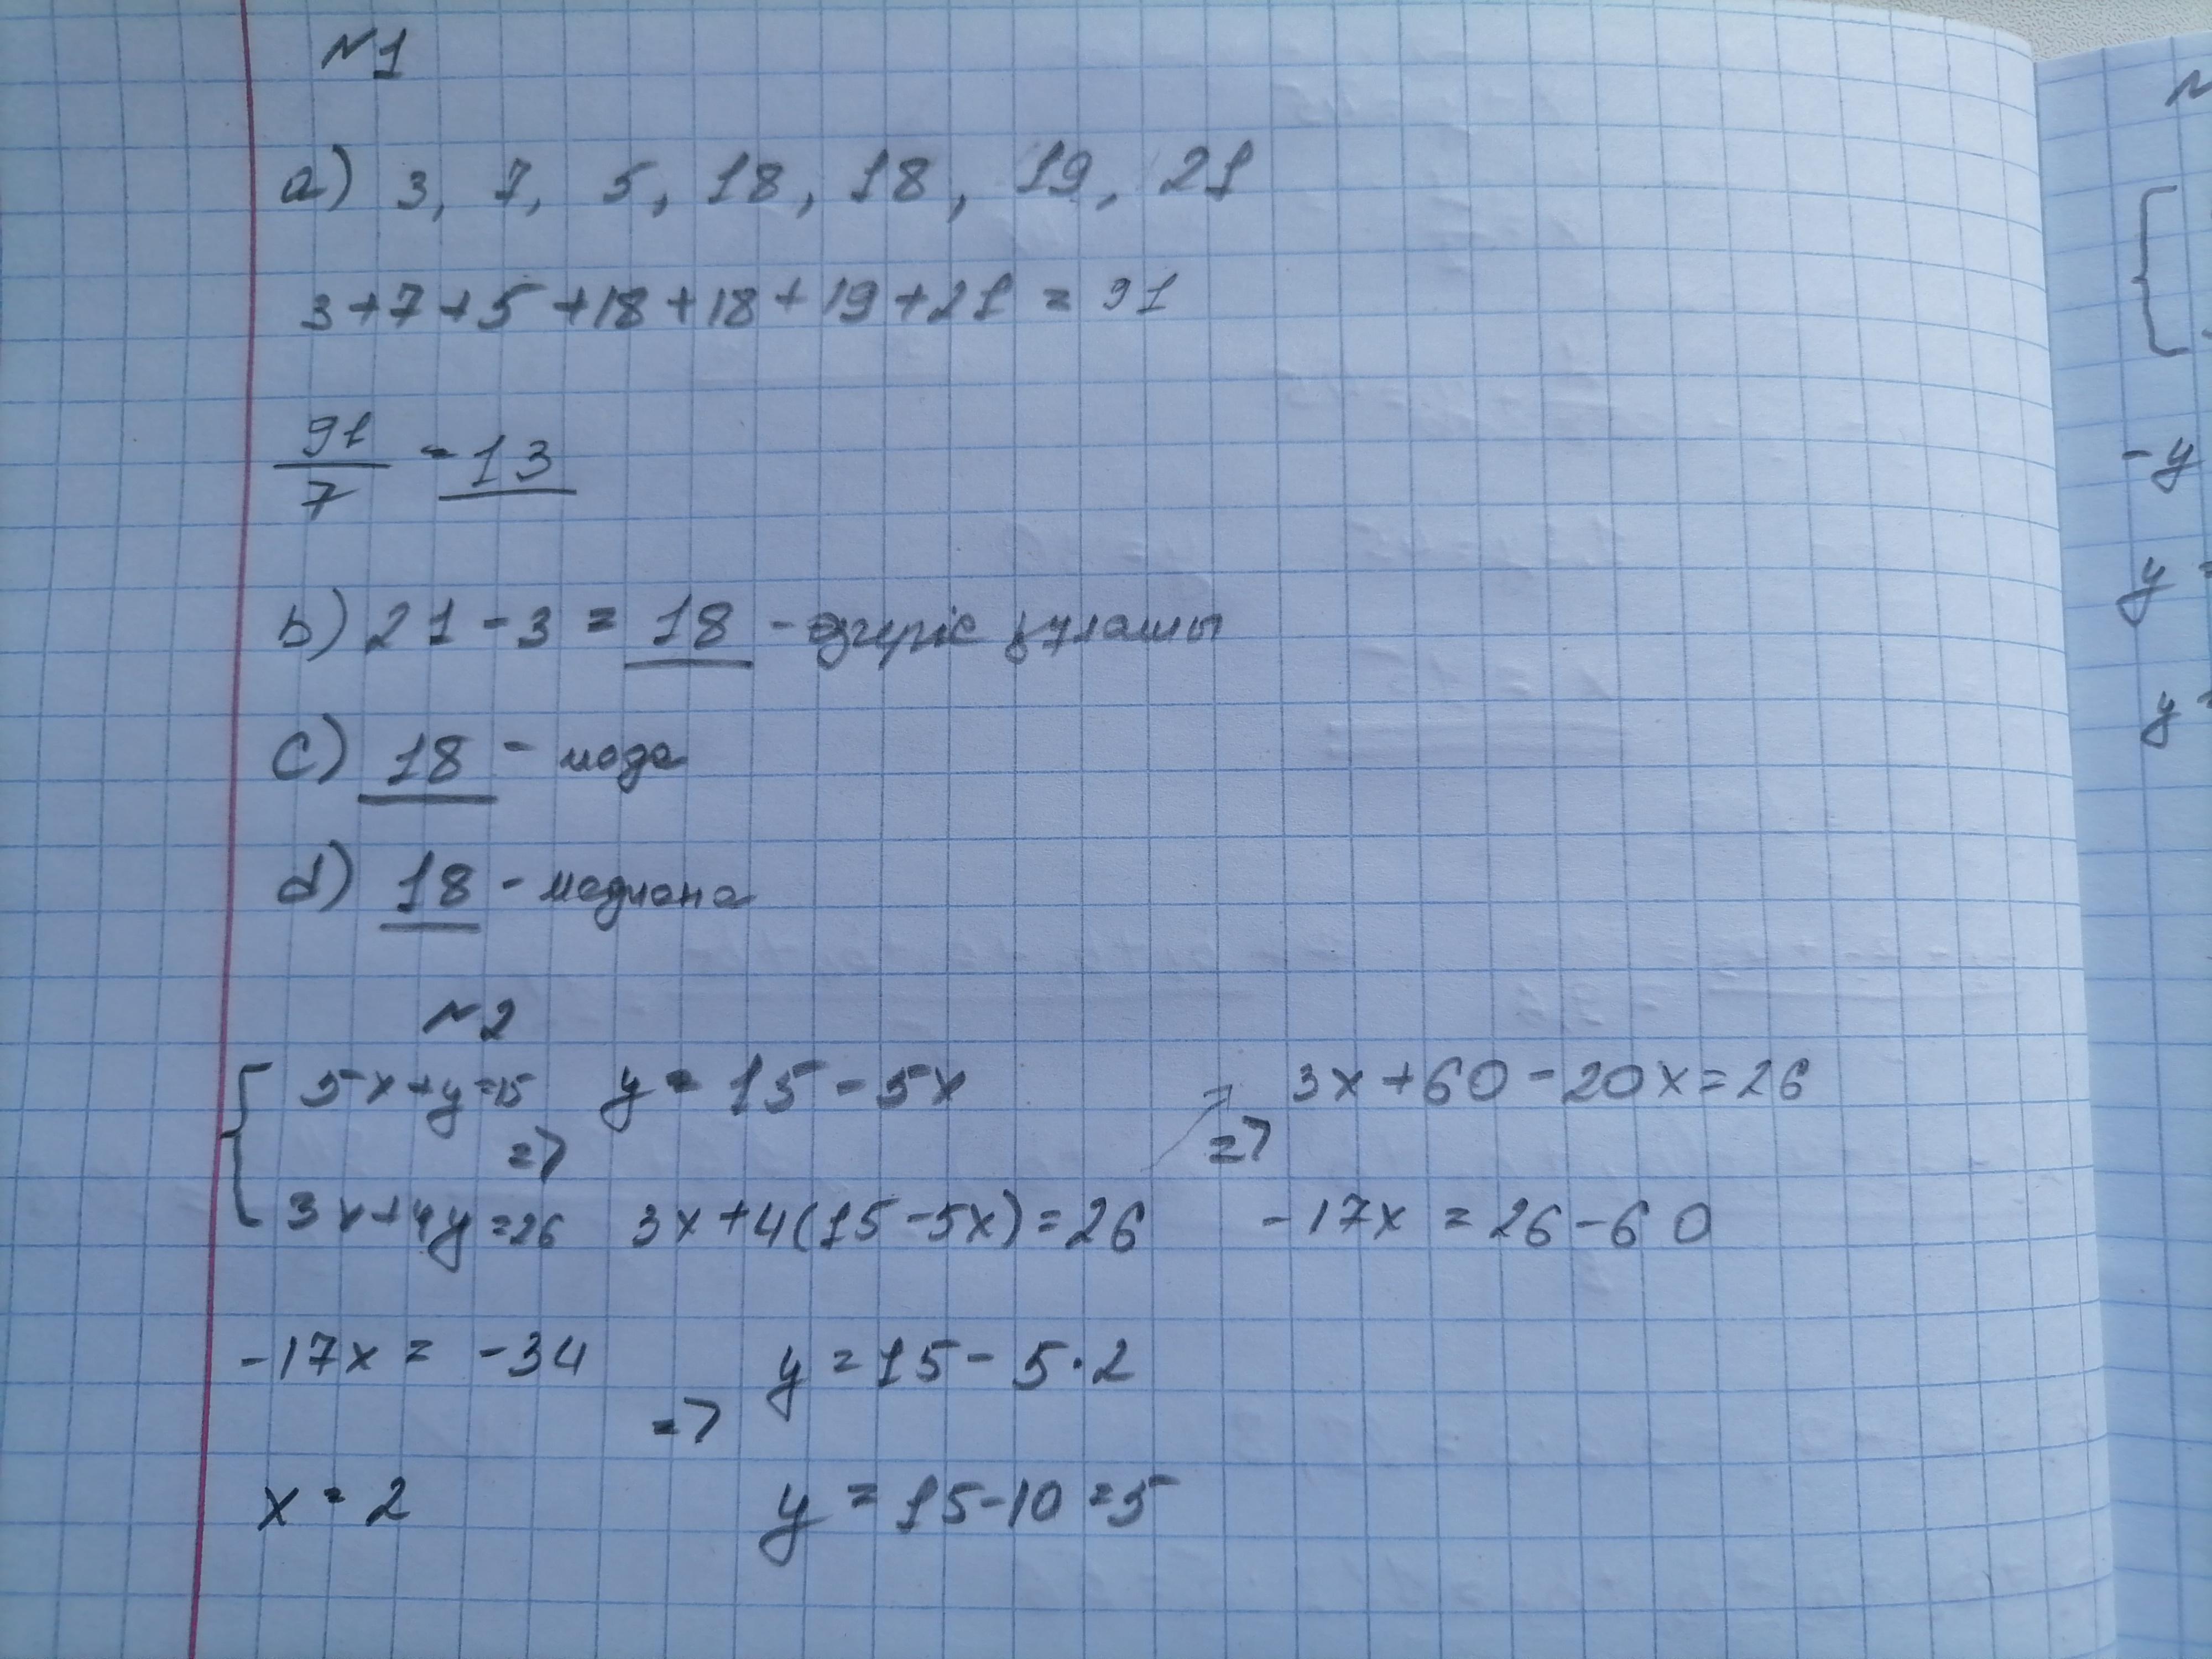 №1
a) 3, 7, 5, 18, 18, 19, 21
3+7+5+18+18+19+21 = 91
91/7 = 13
b) 21-3 = 18 - өзгеріс құлашы
c) 18 - мода
d) 18 - медиана
№2
5x+y=15 => y = 15-5x => 3x+60-20x=26
3x+4y=26 3x+4(15-5x)=26 -17x = 26-60
-17x = -34 => y = 15 - 5·2
x = 2 y = 15-10=5
-y
y =
y =